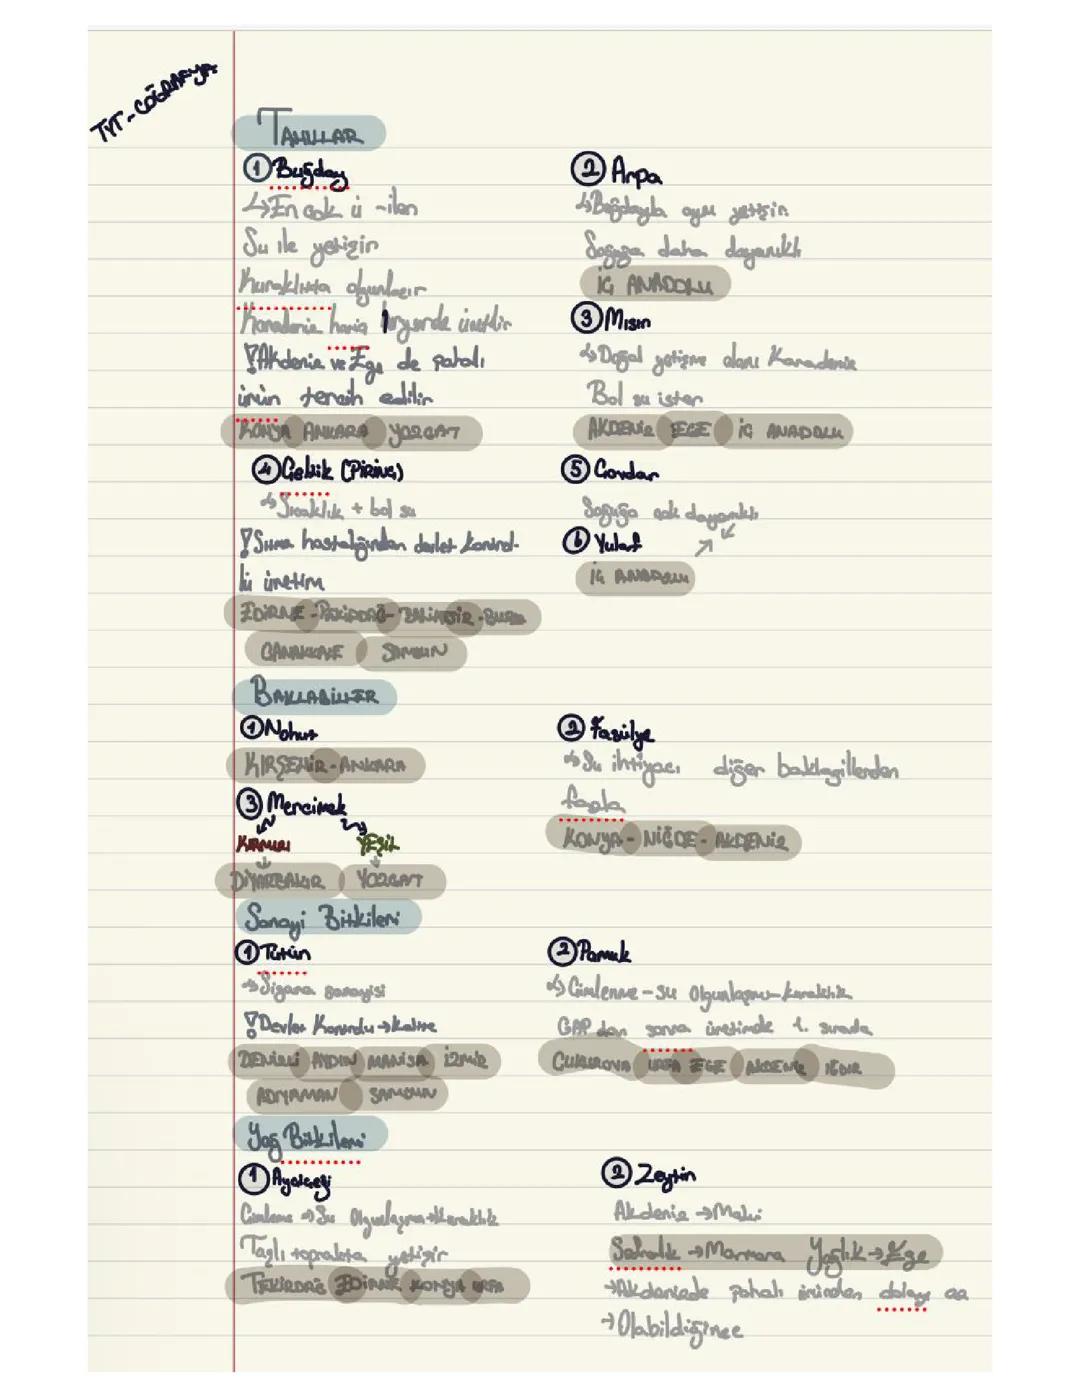 TYT-COĞRAFYA
TAHILLAR
① Buğday
↳ En çok ü -ilen
Su ile yetişir
Kuraklıkta olgunlaşır
Karadeniz hariç heryerde üretilir
! Akdeniz ve Ege de pahalı
ürün tercih edilir
KONYA ANKARA YOZGAT
② Arpa
↳ Buğdayla aynı yetişir
Soğuğa daha dayanıklı
İÇ ANADOLU
③ Mısır
↳ Doğal yetişme alanı Karadeniz
Bol su ister
AKDENİZ EGE İÇ ANADOLU
④ Çeltik (PİRİNÇ)
↳ Sıcaklık + bol su
! Sıtma hastalığından devlet kontrol-
lü üretim
EDİRNE - TEKİRDAĞ - BALIKESİR - BURSA
ÇANAKKALE SAMSUN
⑤ Çavdar
Soğuğa çok dayanıklı
⑥ Yulaf
İÇ ANADOLU
BAKLAGİLLER
① Nohut
KIRŞEHİR - ANKARA
② Fasülye
↳ Su ihtiyacı diğer baklagillerden
fazla
KONYA - NİĞDE - AKDENİZ
③ Mercimek
KIRMIZI YEŞİL
DİYARBAKIR YOZGAT
Sanayi Bitkileri
① Tütün
↳ Sigara sanayisi
! Devlet Kontrolü → Kalite
DENİZLİ AYDIN MANİSA İZMİR
ADIYAMAN SAMSUN
② Pamuk
↳ Çimlenme - su Olgunlaşma - kuraklık
GAP dan sonra üretimde 1. sırada
ÇUKUROVA URFA EGE AKDENİZ IĞDIR
Yağ Bitkileri
① Ayçiçeği
Çimlenme → Su Olgunlaşma → Kuraklık
Taşlı toprakta yetişir
TEKİRDAĞ EDİRNE KONYA URFA
② Zeytin
Akdeniz → Maki
Sofralık → Marmara Yağlık → Ege
→ Akdenizde pahalı üründen dolayı az
→ Olabildiğince